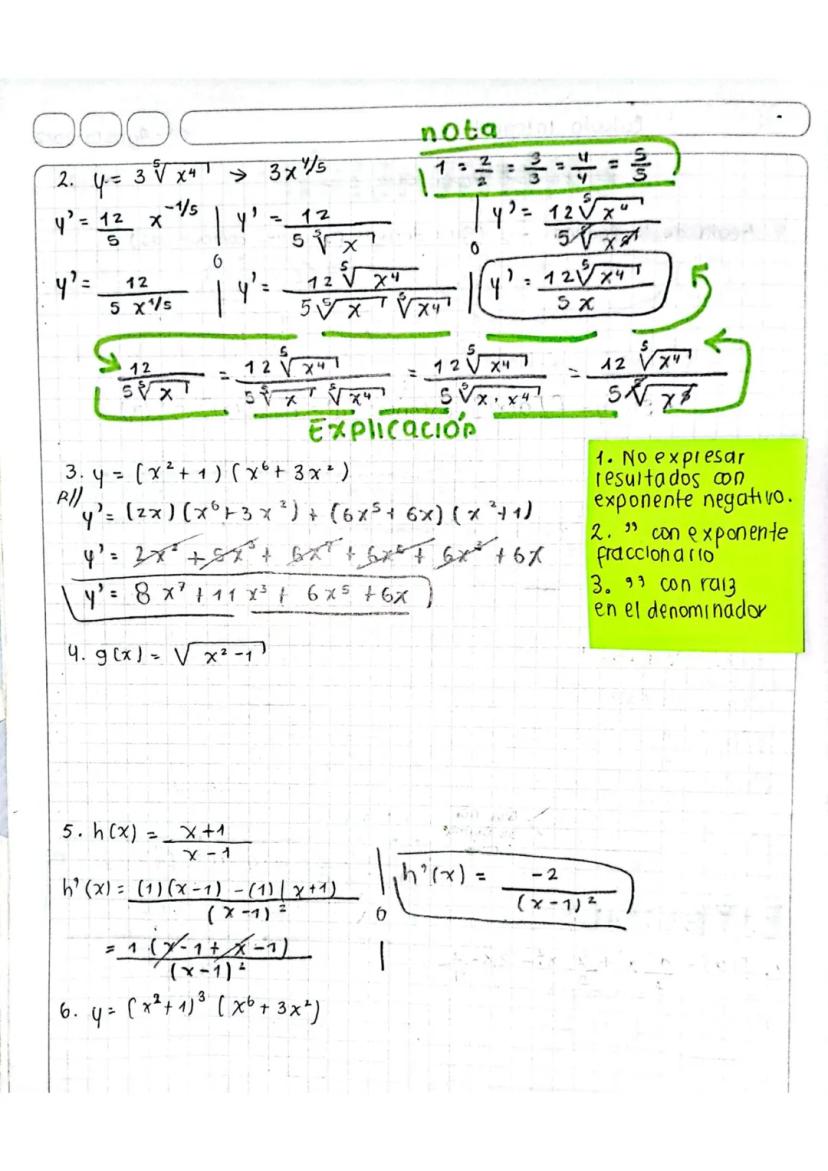 nota
1 = 2/2 = 3/3 = 4/4 = 5/5
2. y = 3 ⁵√x⁴ → 3x^4/5
y' = 12/5 x^-1/5 | y' = 12 / 5 ⁵√x | y' = 12 ⁵√x⁴ / 5 ⁵√x⁵
o o
y' = 12 / 5 x^1/5 | y' = 12 ⁵√x⁴ / 5 ⁵√x ⁵√x⁴ | y' = 12 ⁵√x⁴ / 5x
12 / 5 ⁵√x = 12 ⁵√x⁴ / 5 ⁵√x ⁵√x⁴ = 12 ⁵√x⁴ / 5 ⁵√x · x⁴ = 12 ⁵√x⁴ / 5 ⁵√x⁵
Explicación
3. y = (x² + 1) (x⁶ + 3x²)
R//
y' = (2x) (x⁶ + 3x²) + (6x⁵ + 6x) (x² + 1)
y' = 8x⁷ + 11x³ + 6x⁵ + 6x
1. No expresar
resultados con
exponente negativo.
2. " con exponente
fraccionario
3. " con raiz
en el denominador
4. g(x) = √x² - 1
5. h(x) = x + 1 / x - 1
h'(x) = (1)(x - 1) - (1)(x + 1) / (x - 1)² | o | h'(x) = -2 / (x - 1)²
= 1 (x - 1 + x - 1) / (x - 1)²
6. y = (x² + 1)³ (x⁶ + 3x²)